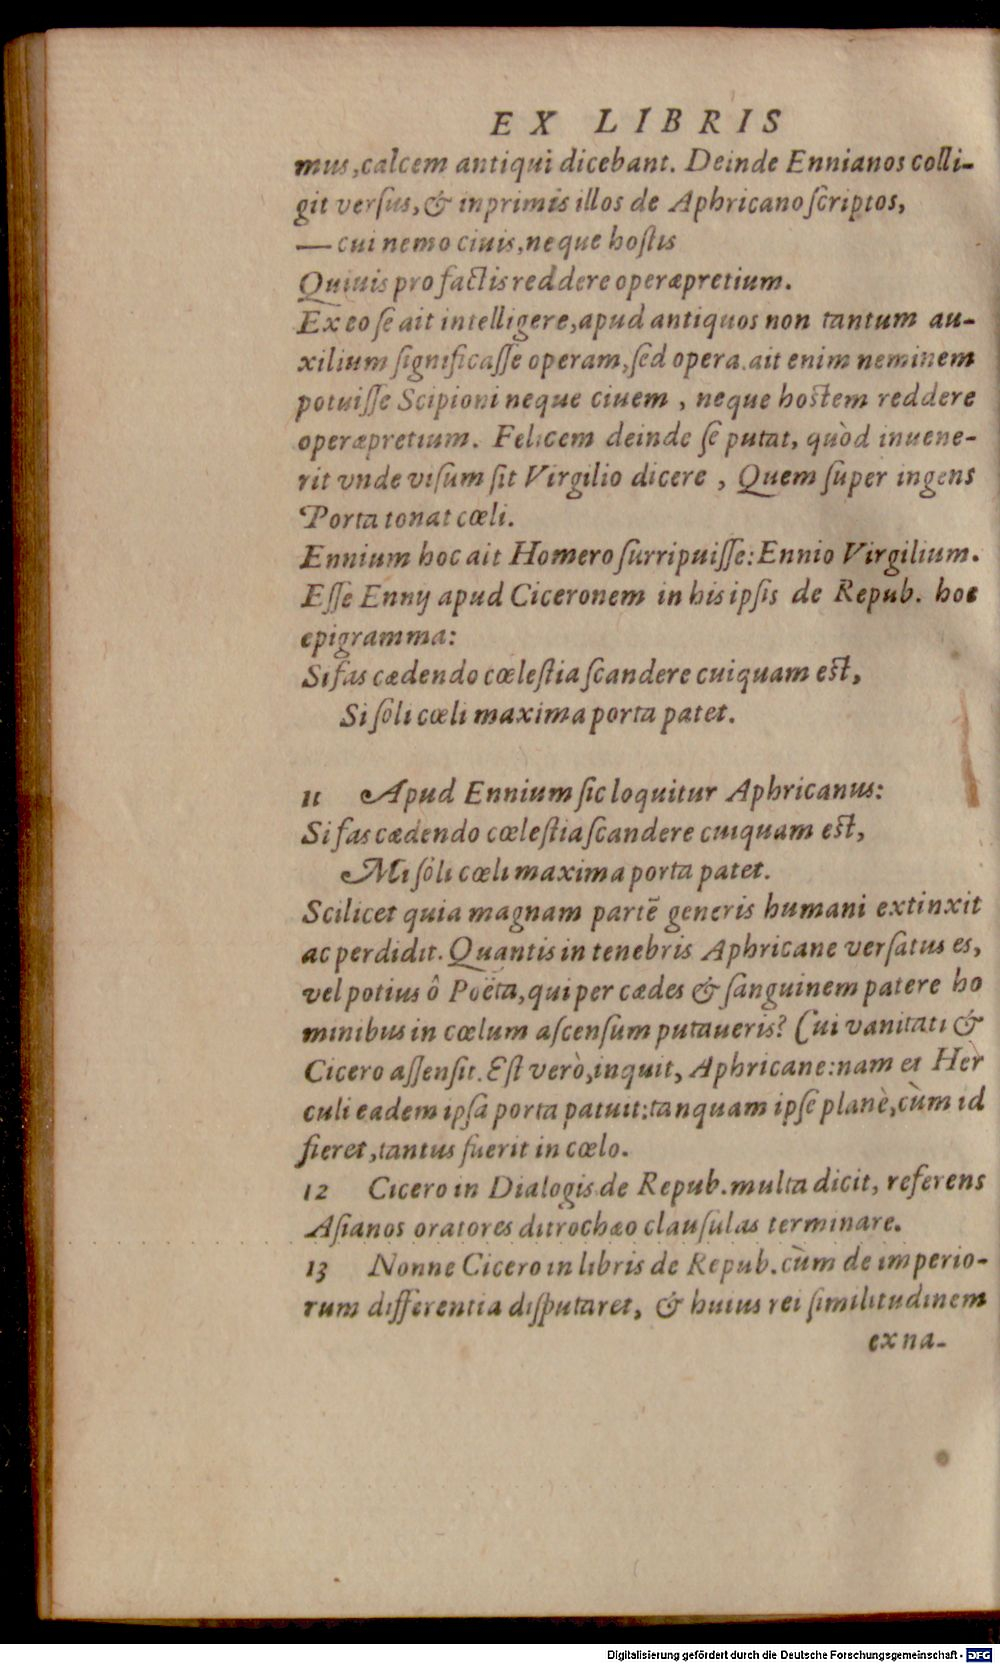 EX LIBRIS
mus, calcem antiqui dicebant. Deinde Ennianos colli-
git verſus, & inprimis illos de Aphricano ſcriptos,
— cui nemo ciuis, neque hoſtis
Quiuis pro factis reddere operæpretium.
Ex eo ſe ait intelligere, apud antiquos non tantum au-
xilium ſignificaſſe operam, ſed opera. ait enim neminem
potuiſſe Scipioni neque ciuem, neque hostem reddere
operæpretium. Felicem deinde ſe putat, quòd inuene-
rit vnde viſum ſit Virgilio dicere, Quem ſuper ingens
Porta tonat cœli.
Ennium hoc ait Homero ſurripuiſſe: Ennio Virgilium.
Eſſe Ennij apud Ciceronem in his ipſis de Repub. hoc
epigramma:
Si fas cædendo cœleſtia ſcandere cuiquam est,
Si ſoli cœli maxima porta patet.
11 Apud Ennium ſic loquitur Aphricanus:
Si fas cædendo cœleſtia ſcandere cuiquam est,
Mi ſoli cœli maxima porta patet.
Scilicet quia magnam partē generis humani extinxit
ac perdidit. Quantis in tenebris Aphricane verſatus es,
vel potius ô Poëta, qui per cædes & ſanguinem patere ho
minibus in cœlum aſcenſum putaueris? Cui vanitati &
Cicero aſſenſit. Eſt verò, inquit, Aphricane: nam et Her
culi eadem ipſa porta patuit: tanquam ipſe planè, cùm id
fieret, tantus fuerit in cœlo.
12 Cicero in Dialogis de Repub. multa dicit, referens
Aſianos oratores ditrochæo clauſulas terminare.
13 Nonne Cicero in libris de Repub. cùm de imperio-
rum differentia diſputaret, & huius rei ſimilitudinem
ex na-
Digitalisierung gefördert durch die Deutsche Forschungsgemeinschaft - DFG